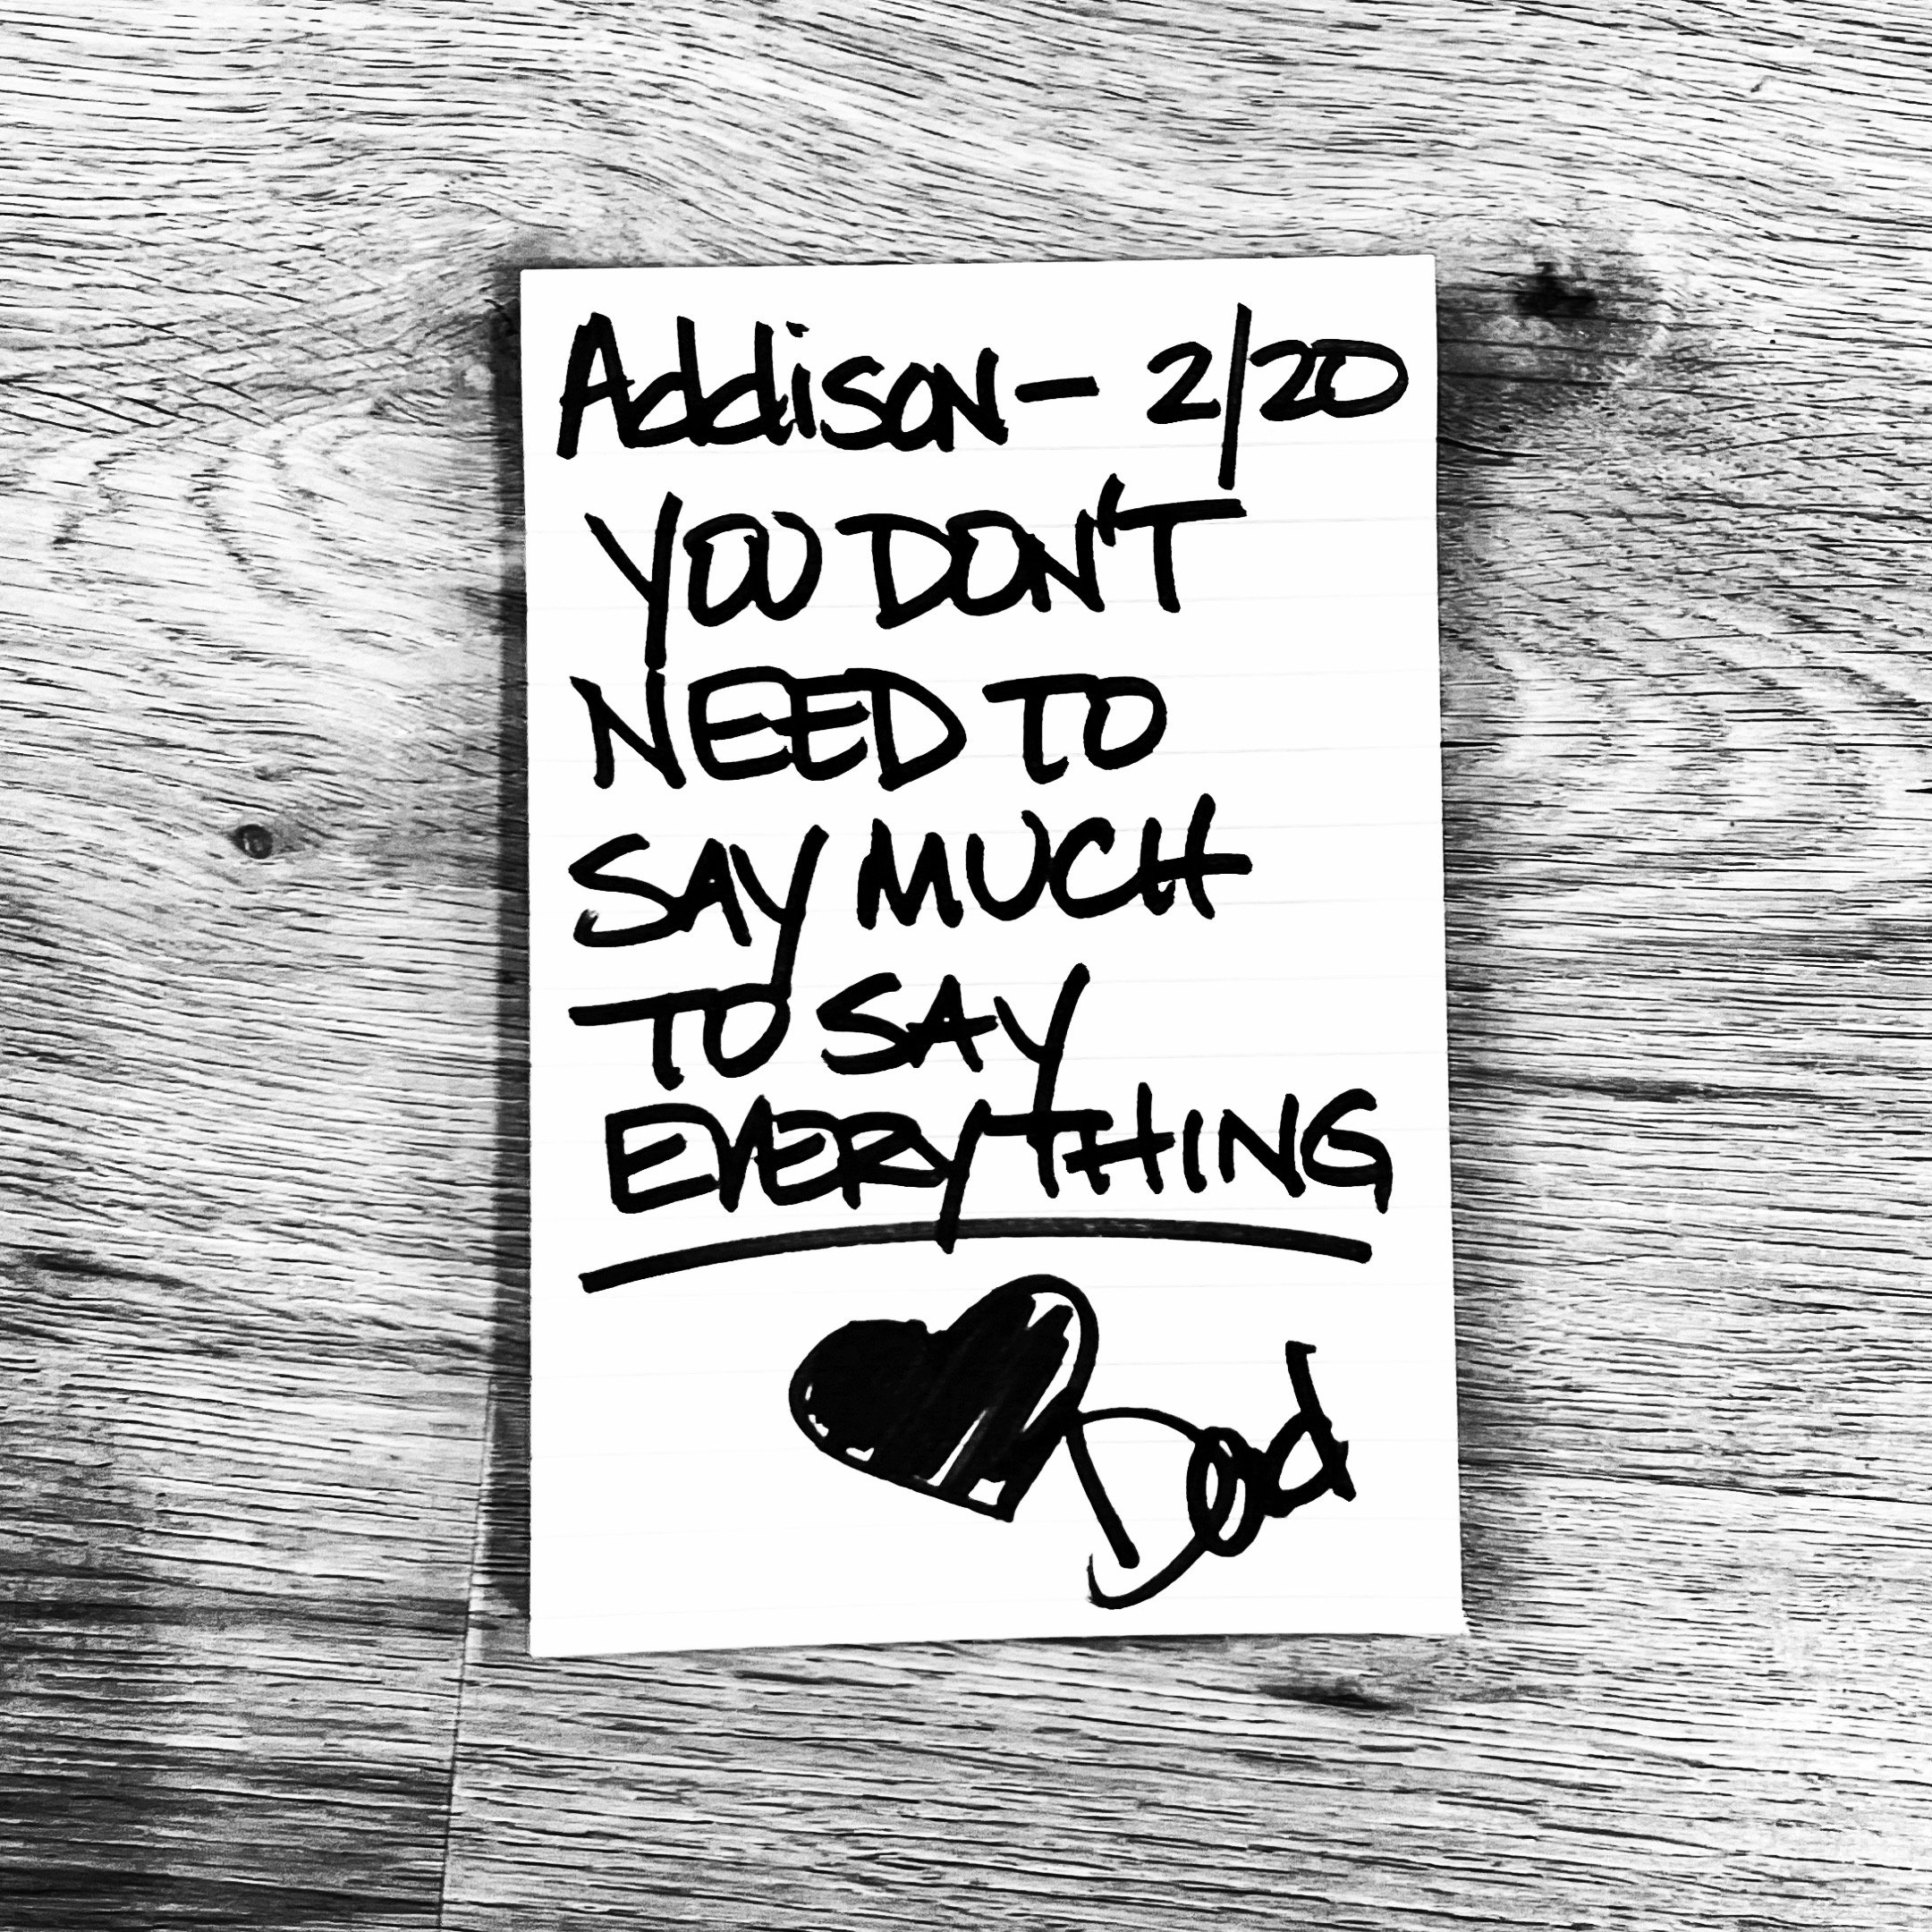 Addison— 2/20
YOU DON'T
NEED TO
SAY MUCH
TO SAY
EVERYTHING
Dad